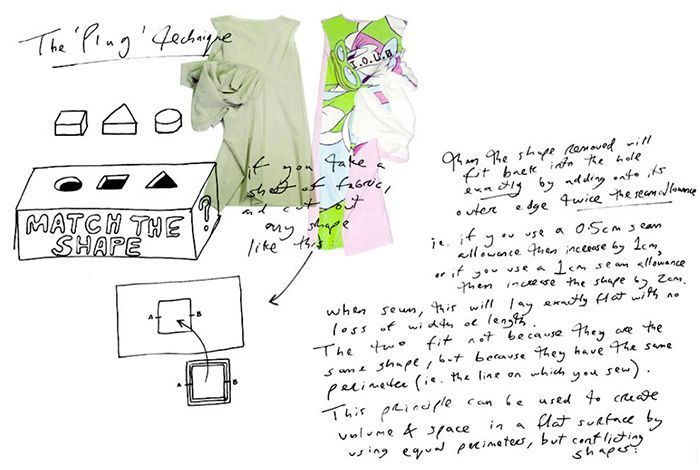 The 'Plug' technique
I.O.U.0
MATCH THE
SHAPE
?
if you take a
sheet of fabric,
and cut out
any shape
like this:
A
B
A
B
then the shape removed will
fit back into the hole
exactly by adding onto its
outer edge twice the seam allowance
ie. if you use a 0.5cm seam
allowance then increase by 1cm,
or if you use a 1cm seam allowance
then increase the shape by 2cm.
when sewn, this will lay exactly flat with no
loss of width or length.
The two fit not because they are the
same shape, but because they have the same
perimeter (ie. the line on which you sew).
This principle can be used to create
volume & space in a flat surface by
using equal perimeters, but conflicting
shapes.